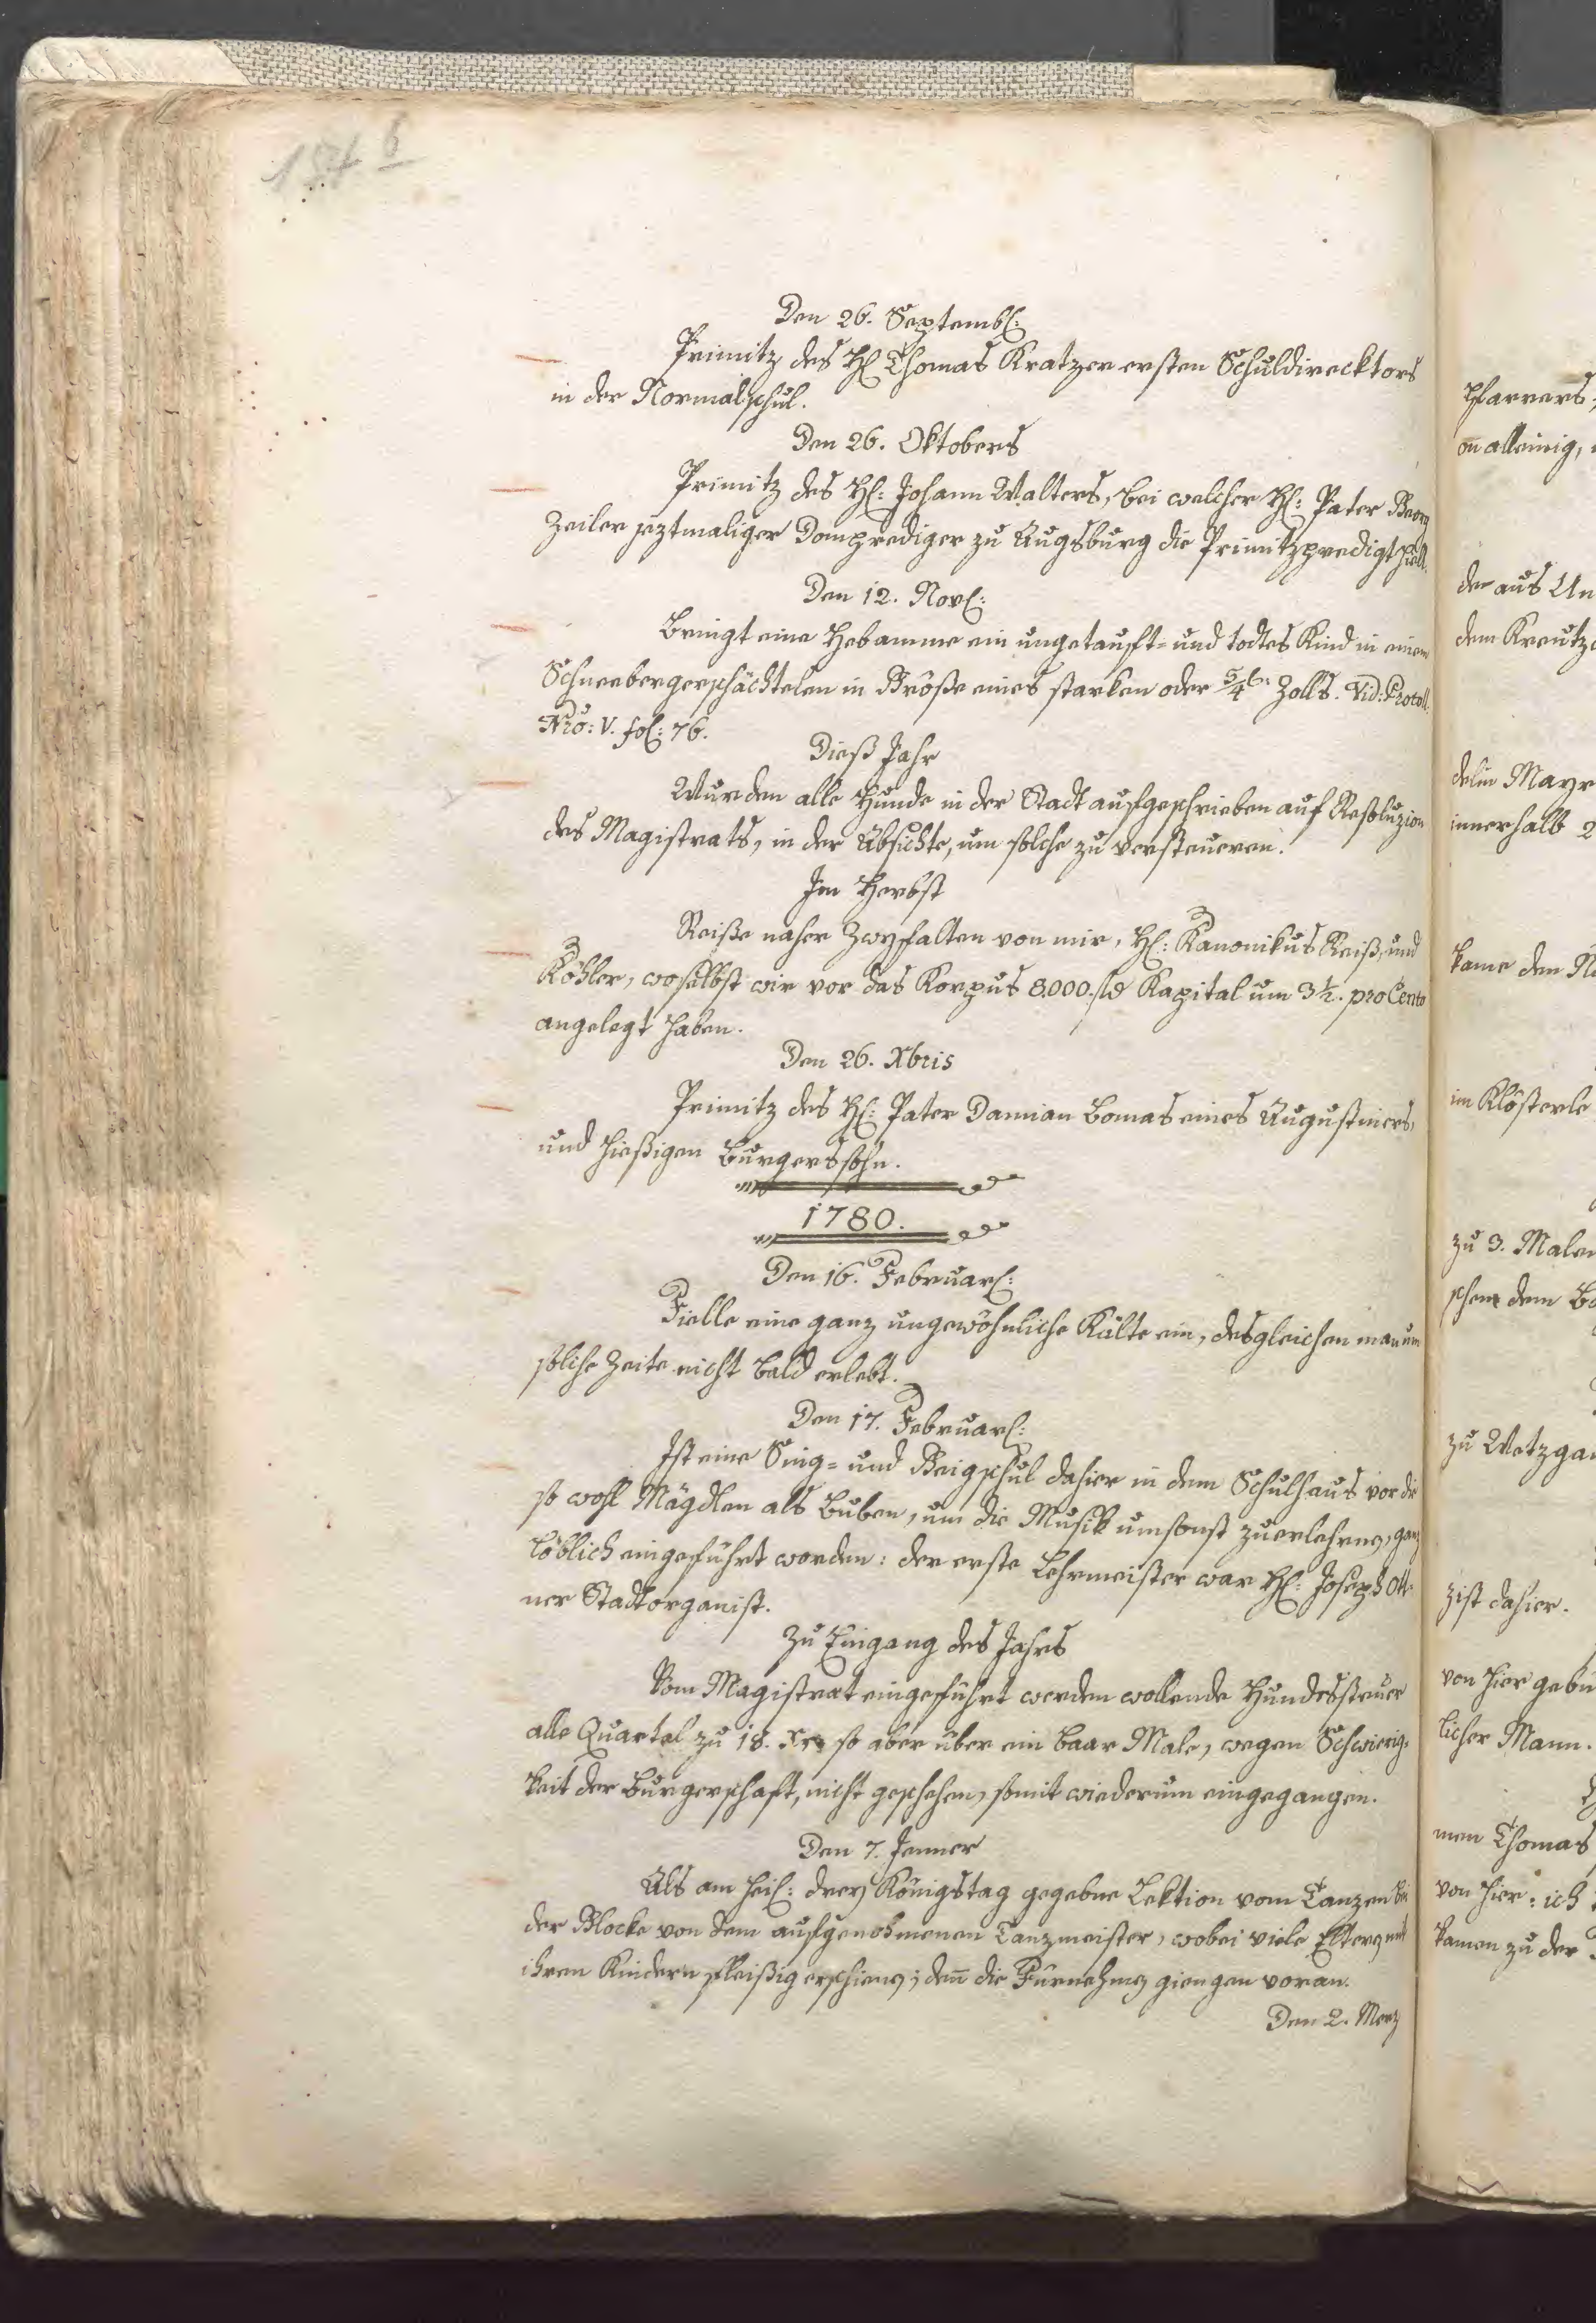 Den 26. Septemb:
Primitz des H: Thomas Kratzer ersten Schuldirecktors
in der Normalschul.
Den 26. Oktobers
Primitz des H: Johann Walters, bei welcher H: Pater Georg
Zeiler jeztmaliger Domprediger zu Augsburg die Primitzpredigt hielt.
Den 12. Nov:
Bringt eine Hebamme ein ungetauft- und todtes Kind in einem
Schneebergerschächtelen in Größe eines starken oder 5/4 Zolls. Vid: Protoll.
Nro: V. fol: 76.
Dieß Jahr
Wurden alle Hunde in der Stadt aufgeschrieben auf Resoluzion
des Magistrats, in der Absichte, um solche zu versteueren.
Im Herbst
Reiße naher Zwyfalten von mir, H: Kanonikus Reiß, und
Köhler, woselbst wir vor das Korpus 8000. fl Kapital um 3 1/2. pro Cento
angelegt haben.
Den 26. Xbris
Primitz des H: Pater Damian Bomas eines Augustiners,
und hießigen Burgerssohn.
1780.
Den 16. Februar:
Fielle eine ganz ungewöhnliche Kälte ein, desgleichen man um
solche Zeite nicht bald erlebt.
Den 17. Februar:
Ist eine Sing- und Geigschul dahier in dem Schulhaus vor die
so wohl Mägdlen als Buben, um die Musik umsonst zuerlehrnen, ganz
löblich eingeführt worden: der erste Lehrmeister war H: Joseph Ott-
ner Stadtorganist.
Zu Eingang des Jahrs
Vom Magistrat eingeführt werden wollende Hundessteuer
alle Quartal zu 18. Xr so aber über ein baar Male, wegen Schwierig-
keit der Burgerschaft, nicht geschehen, somit wiederum eingegangen.
Den 7. Jenner
Als am heil: drey Königstag gegebne Lektion vom Tanzen bei
der Glocke von dem aufgenohmenen Tanzmeister, wobei viele Eltern mit
ihren Kindern fleißig erschienen; deñ die Fürnehmen giengen voran.
Den 2. Merz
pfarrers;
alleinig,
der aus
dem Kreutz
delin Mayr
innerhalb
kame den
im Klösterle
zu 3. Malen
schen dem
zu Wetzgau
zist dahier.
von hier
licher Mann.
men Thomas
von hier: ich
kamen zu der